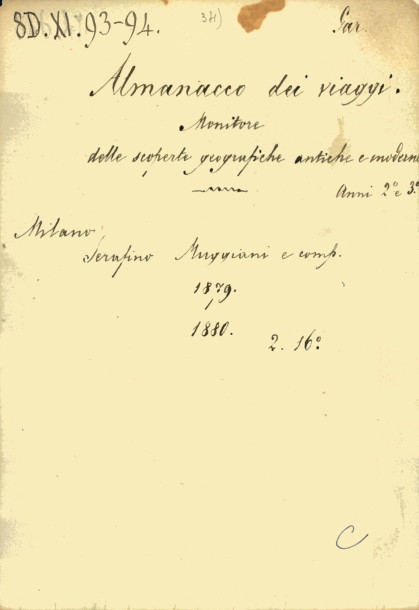 8D.XI.93-94. 34) Gar.
Almanacco dei viaggi.
Monitore
delle scoperte geografiche antiche e moderne
Anni 2º e 3º
Milano
Serafino Muggiani e comp.
1879.
1880.
2. 16º
C